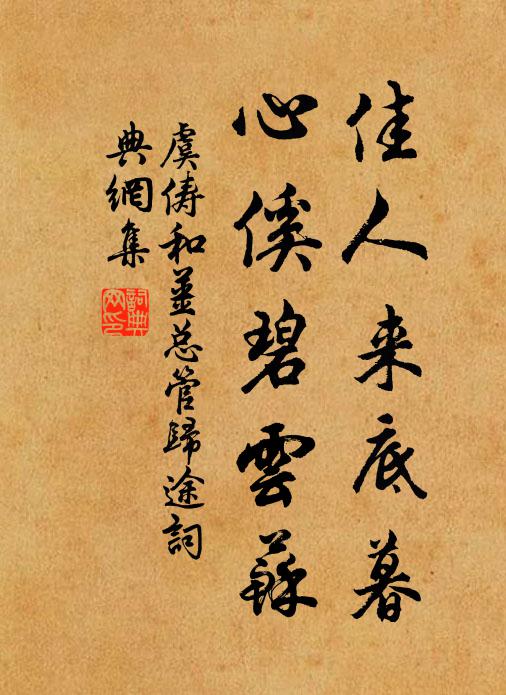 佳人来底暮
心傒碧雲蘇
虞儔和薑总管歸途詞
典網集
詞典
网印